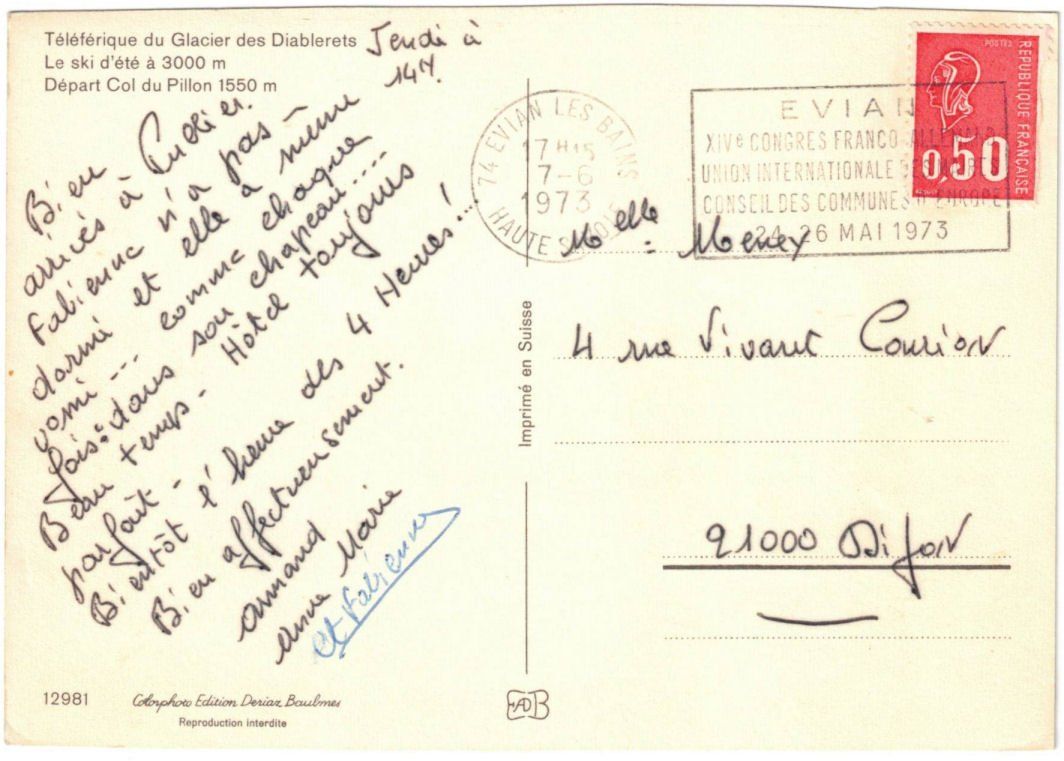 Téléférique du Glacier des Diablerets
Le ski d'été à 3000 m
Départ Col du Pillon 1550 m
Jeudi à
14H.
Bien
arrivés à Publier.
Fabienne n'a pas
dormi et elle a même
vomi... comme chaque
fois: dans son chapeau...
Beau temps - Hôtel toujours
parfait -
Bientôt l'heure des 4 Heures!....
Bien affectueusement.
Armand
Anne Marie
et Fabienne
12981
Colorphoto Edition Deriaz Baulmes
Reproduction interdite
Imprimé en Suisse
74 EVIAN LES BAINS
17H15
7-6
1973
HAUTE SAVOIE
EVIAN
XIVe CONGRES FRANCO-ALLEMAND
UNION INTERNATIONALE DES MAIRES
CONSEIL DES COMMUNES D'EUROPE
24-26 MAI 1973
POSTES
REPUBLIQUE FRANÇAISE
0,50
Melle
4 rue Vivant
21000 Dijon